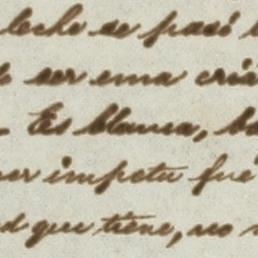 leche se pasó
ser una criá
Es blanca, ba
ímpetu fué
que tiene, no